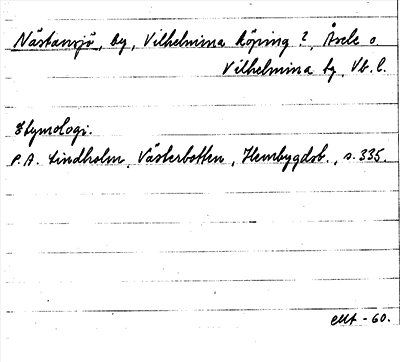 Nästansjö, by, Vilhelmina köping ?, Åsele o.
Vilhelmina tg, Vb. l.
Etymologi.
P.A. Lindholm, Västerbotten, Hembygdsb., s. 335.
EMt - 60.